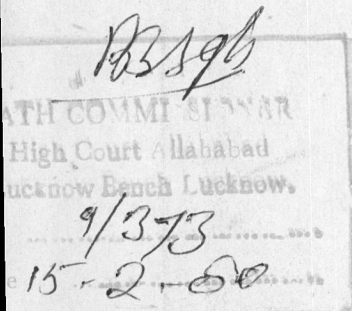 ATH COMMISSIONER
High Court Allahabad
ucknow Bench Lucknow.
9/373
15-2-80